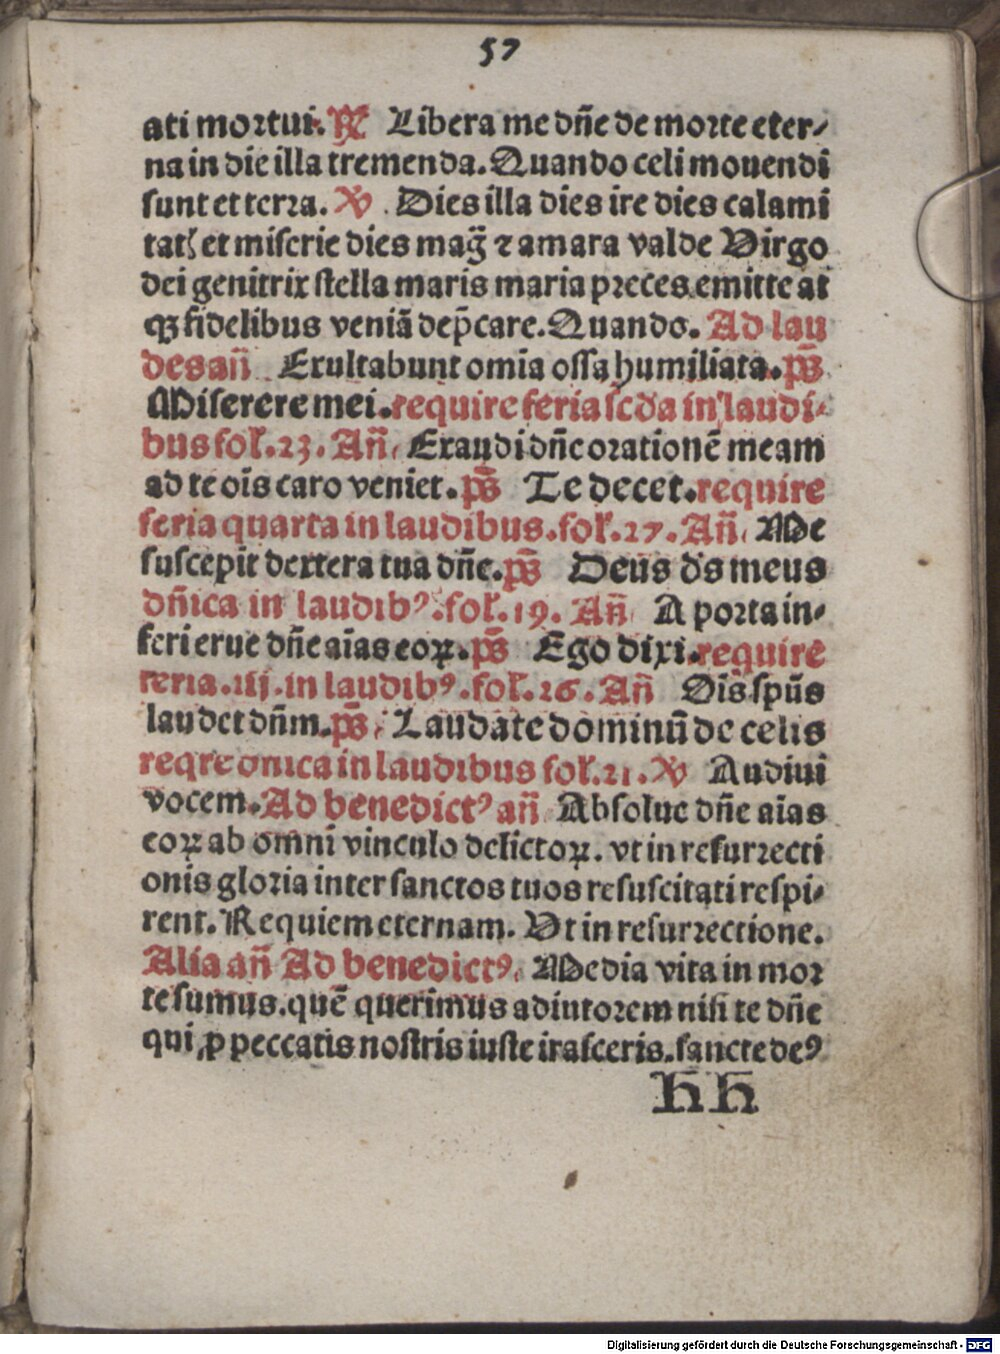 57
ati mortui. ℟ Libera me dñe de morte eter⸗
na in die illa tremenda. Quando celi mouendi
sunt et terra. ℣ . Dies illa dies ire dies calami
tatꝭ et miserie dies mag̃ ⁊ amara valde Virgo
dei genitrix stella maris maria preces emitte at
qꝫ fidelibus veniā dep̄care. Quando. Ad lau
des añ Exultabunt omīa ossa humiliata. ps̄
Miserere mei. require feria scďa in laudi⸗
bus fol̄. 23. Añ Exaudi dñe orationē meam
ad te oīs caro veniet. ps̄ Te decet. require
feria quarta in laudibus. fol̄. 27. Añ Me
suscepit dextera tua dñe. ps̄ Deus ďs meus
dñica in laudibꝰ. fol̄. 19. Añ A porta in⸗
feri erue dñe aīas eoꝝ. ps̄ Ego dixi. require
feria. iij. in laudibꝰ. fol̄. 26. Añ Oīs spūs
laudet dñm. ps̄ Laudate dominū de celis
reqre dnica in laudibus fol̄. 21. ℣ Audiui
vocem. Ad benedictꝰ añ Absolue dñe aīas
eoꝝ ab omni vinculo delictoꝝ. vt in resurrecti
onis gloria inter sanctos tuos resuscitati respi⸗
rent. Requiem eternam. Vt in resurrectione.
Alia añ Ad benedictꝰ. Media vita in mor
te sumus. quē querimus adiutorem nisi te dñe
qui ꝓ peccatis nostris iuste irasceris. sancte deꝰ
hh
Digitalisierung gefördert durch die Deutsche Forschungsgemeinschaft - DFG